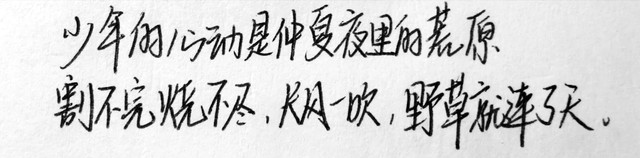 少年的心动是仲夏夜里的荒原
割不完烧不尽，长风一吹，野草就连了天。